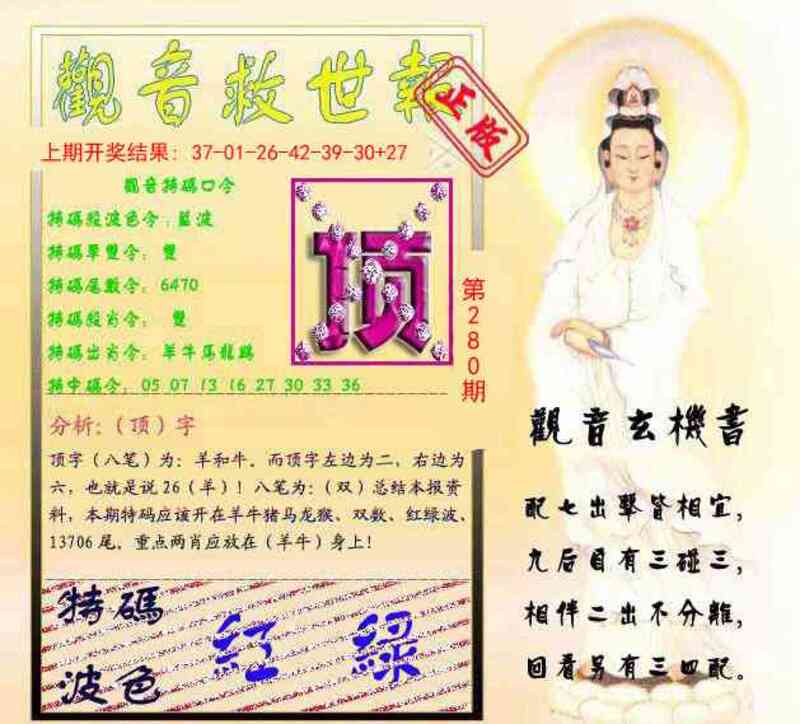 觀音救世報
正版
上期开奖结果：37-01-26-42-39-30+27
觀音特碼口令
特碼殺波色令：藍波
特碼單雙令：雙
特碼尾數令：6470
特碼殺肖令：雙
特碼出肖令：羊牛馬龍鷄
特中碼令：05 07 13 16 27 30 33 36
顶
第280期
分析：（顶）字
顶字（八笔）为：羊和牛。而顶字左边为二，右边为
六，也就是说26（羊）！八笔为：（双）总结本报资
料，本期特码应该开在羊牛猪马龙猴、双数、红绿波、
13706尾，重点两肖应放在（羊牛）身上！
特碼
波色
紅 綠
觀音玄機書
配七出擊皆相宜，
九后目有三碰三，
相伴二出不分離，
回看另有三四配。